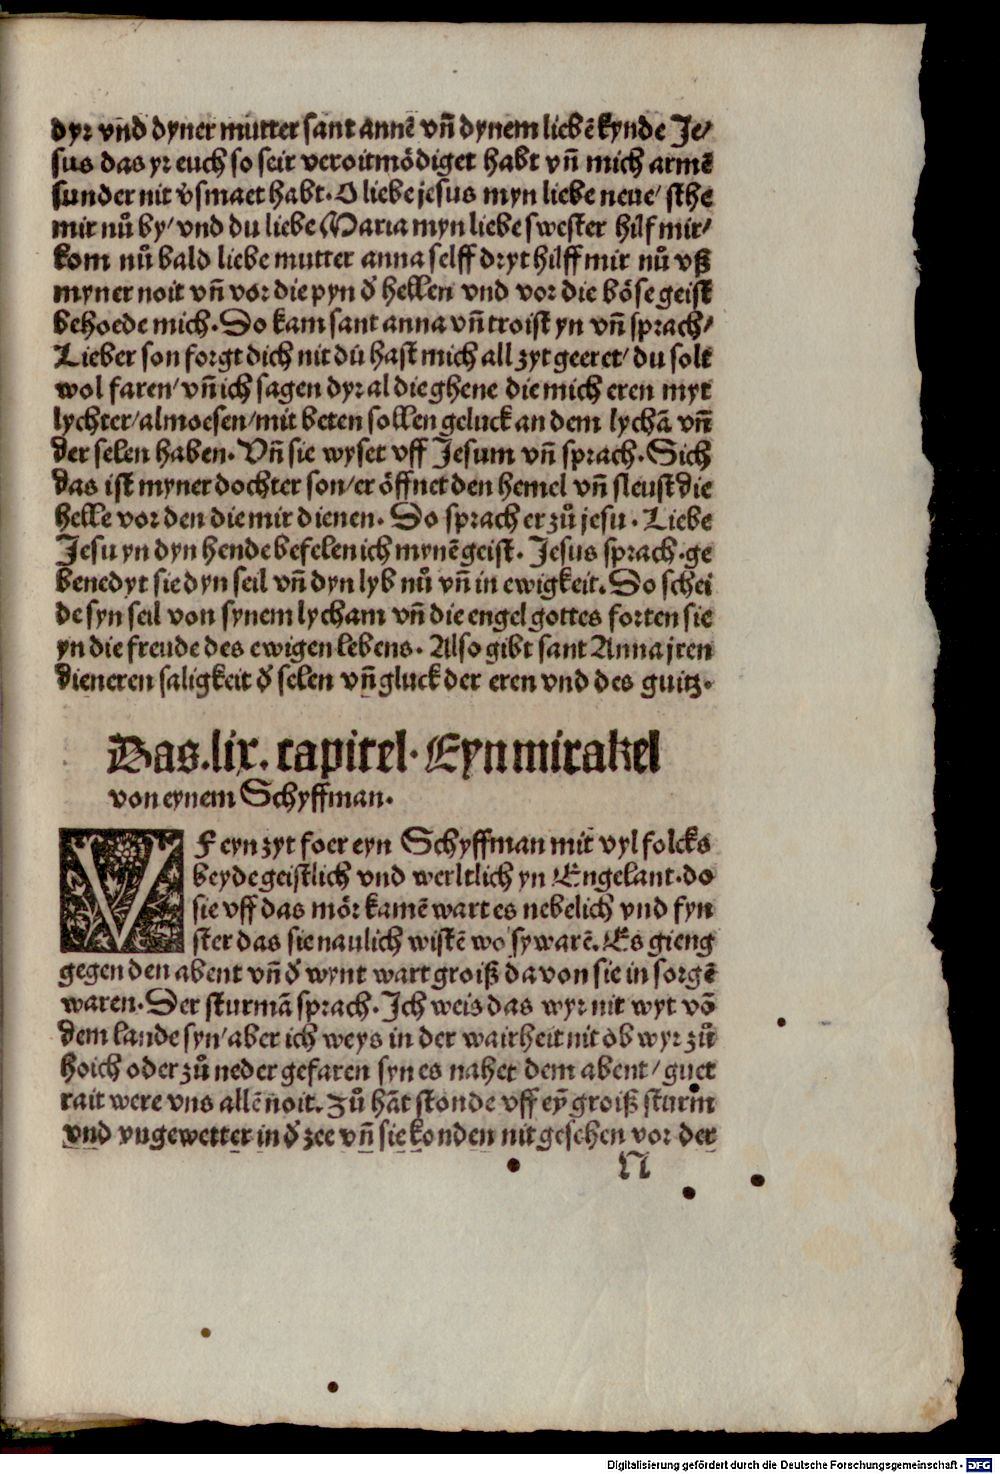 dyr vnd dyner mutter sant annē vn̄ dynem liebē kynde Je/
sus das yr euch so seir veroitmödiget habt vn̄ mich armē
sunder nit v̓smaet habt. O liebe jesus myn liebe neue/ sthe
mir nů by/ vnd du liebe Maria myn liebe swester hilf mir/
kom nů bald liebe mutter anna selff dryt hilff mir nů vß
myner noit vn̄ vor die pyn d̓ hellen vnd vor die böse geist
behoede mich. Do kam sant anna vn̄ troist yn vn̄ sprach/
Lieber son sorgt dich nit du hast mich all zyt geeret/ du solt
wol faren/ vn̄ ich sagen dyr al die ghene die mich eren myt
lychter/ almoesen/ mit beten sollen geluck an dem lychā vn̄
der selen haben. Vn̄ sie wyset vff Jesum vn̄ sprach. Sich
das ist myner dochter son/ er öffnet den hemel vn̄ sleust die
helle vor den die mir dienen. Do sprach er zů jesu. Liebe
Jesu yn dyn hende befelen ich mynē geist. Jesus sprach. ge
benedyt sie dyn seil vn̄ dyn lyb nů vn̄ in ewigkeit. Do schei
de syn seil von synem lycham vn̄ die engel gottes forten sie
yn die freude des ewigen lebens. Also gibt sant Anna jren
dieneren saligkeit d̓ selen vn̄ gluck der eren vnd des guitz.
Das .lix. capitel. Eyn mirakel
von eynem Schyffman.
VF eyn zyt foer eyn Schyffman mit vyl folcks
beyde geistlich vnd werltlich yn Engelant. do
sie vff das mör kamē wart es nebelich vnd fyn
ster das sie naulich wistē wo sy warē. Es gieng
gegen den abent vn̄ d̓ wynt wart groiß da von sie in sorgē
waren. Der sturmā sprach. Ich weis das wyr nit wyt vō
dem lande syn/ aber ich weys in der wairheit nit ob wyr zů
hoich oder zů neder gefaren syn es nahet dem abent/ guet
rait were vns allē noit. Zů hāt stonde vff ey̅ groiß sturm
vnd vngewetter in d̓ zee vn̄ sie konden nit gesehen vor der
N
Digitalisierung gefördert durch die Deutsche Forschungsgemeinschaft - DFG